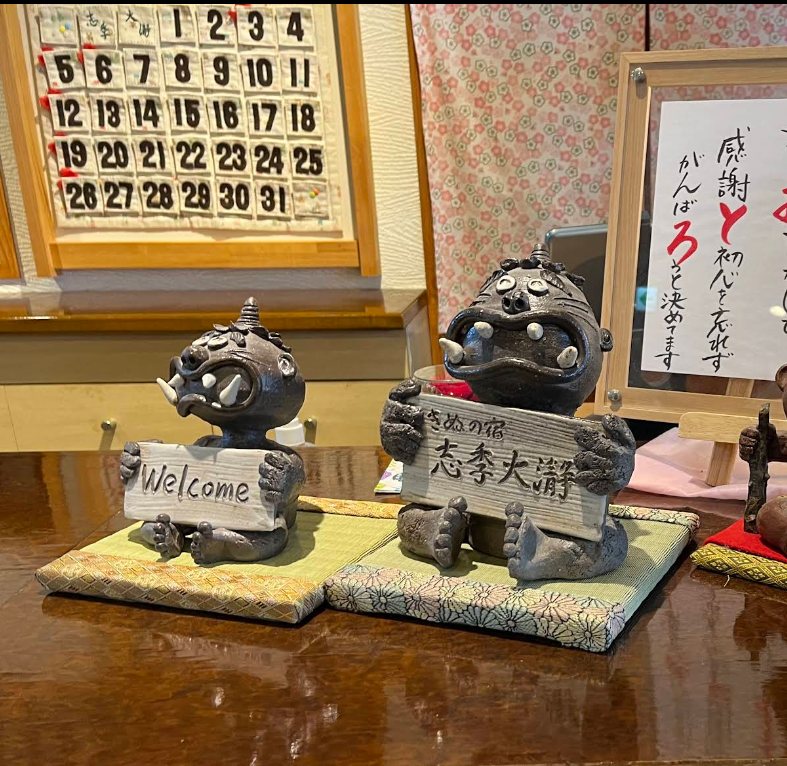 志季 大瀞 1 2 3 4
5 6 7 8 9 10 11
12 13 14 15 16 17 18
19 20 21 22 23 24 25
26 27 28 29 30 31
感謝と初心を忘れず
がんばろうと決めてます
Welcome
きぬの宿
志季大瀞